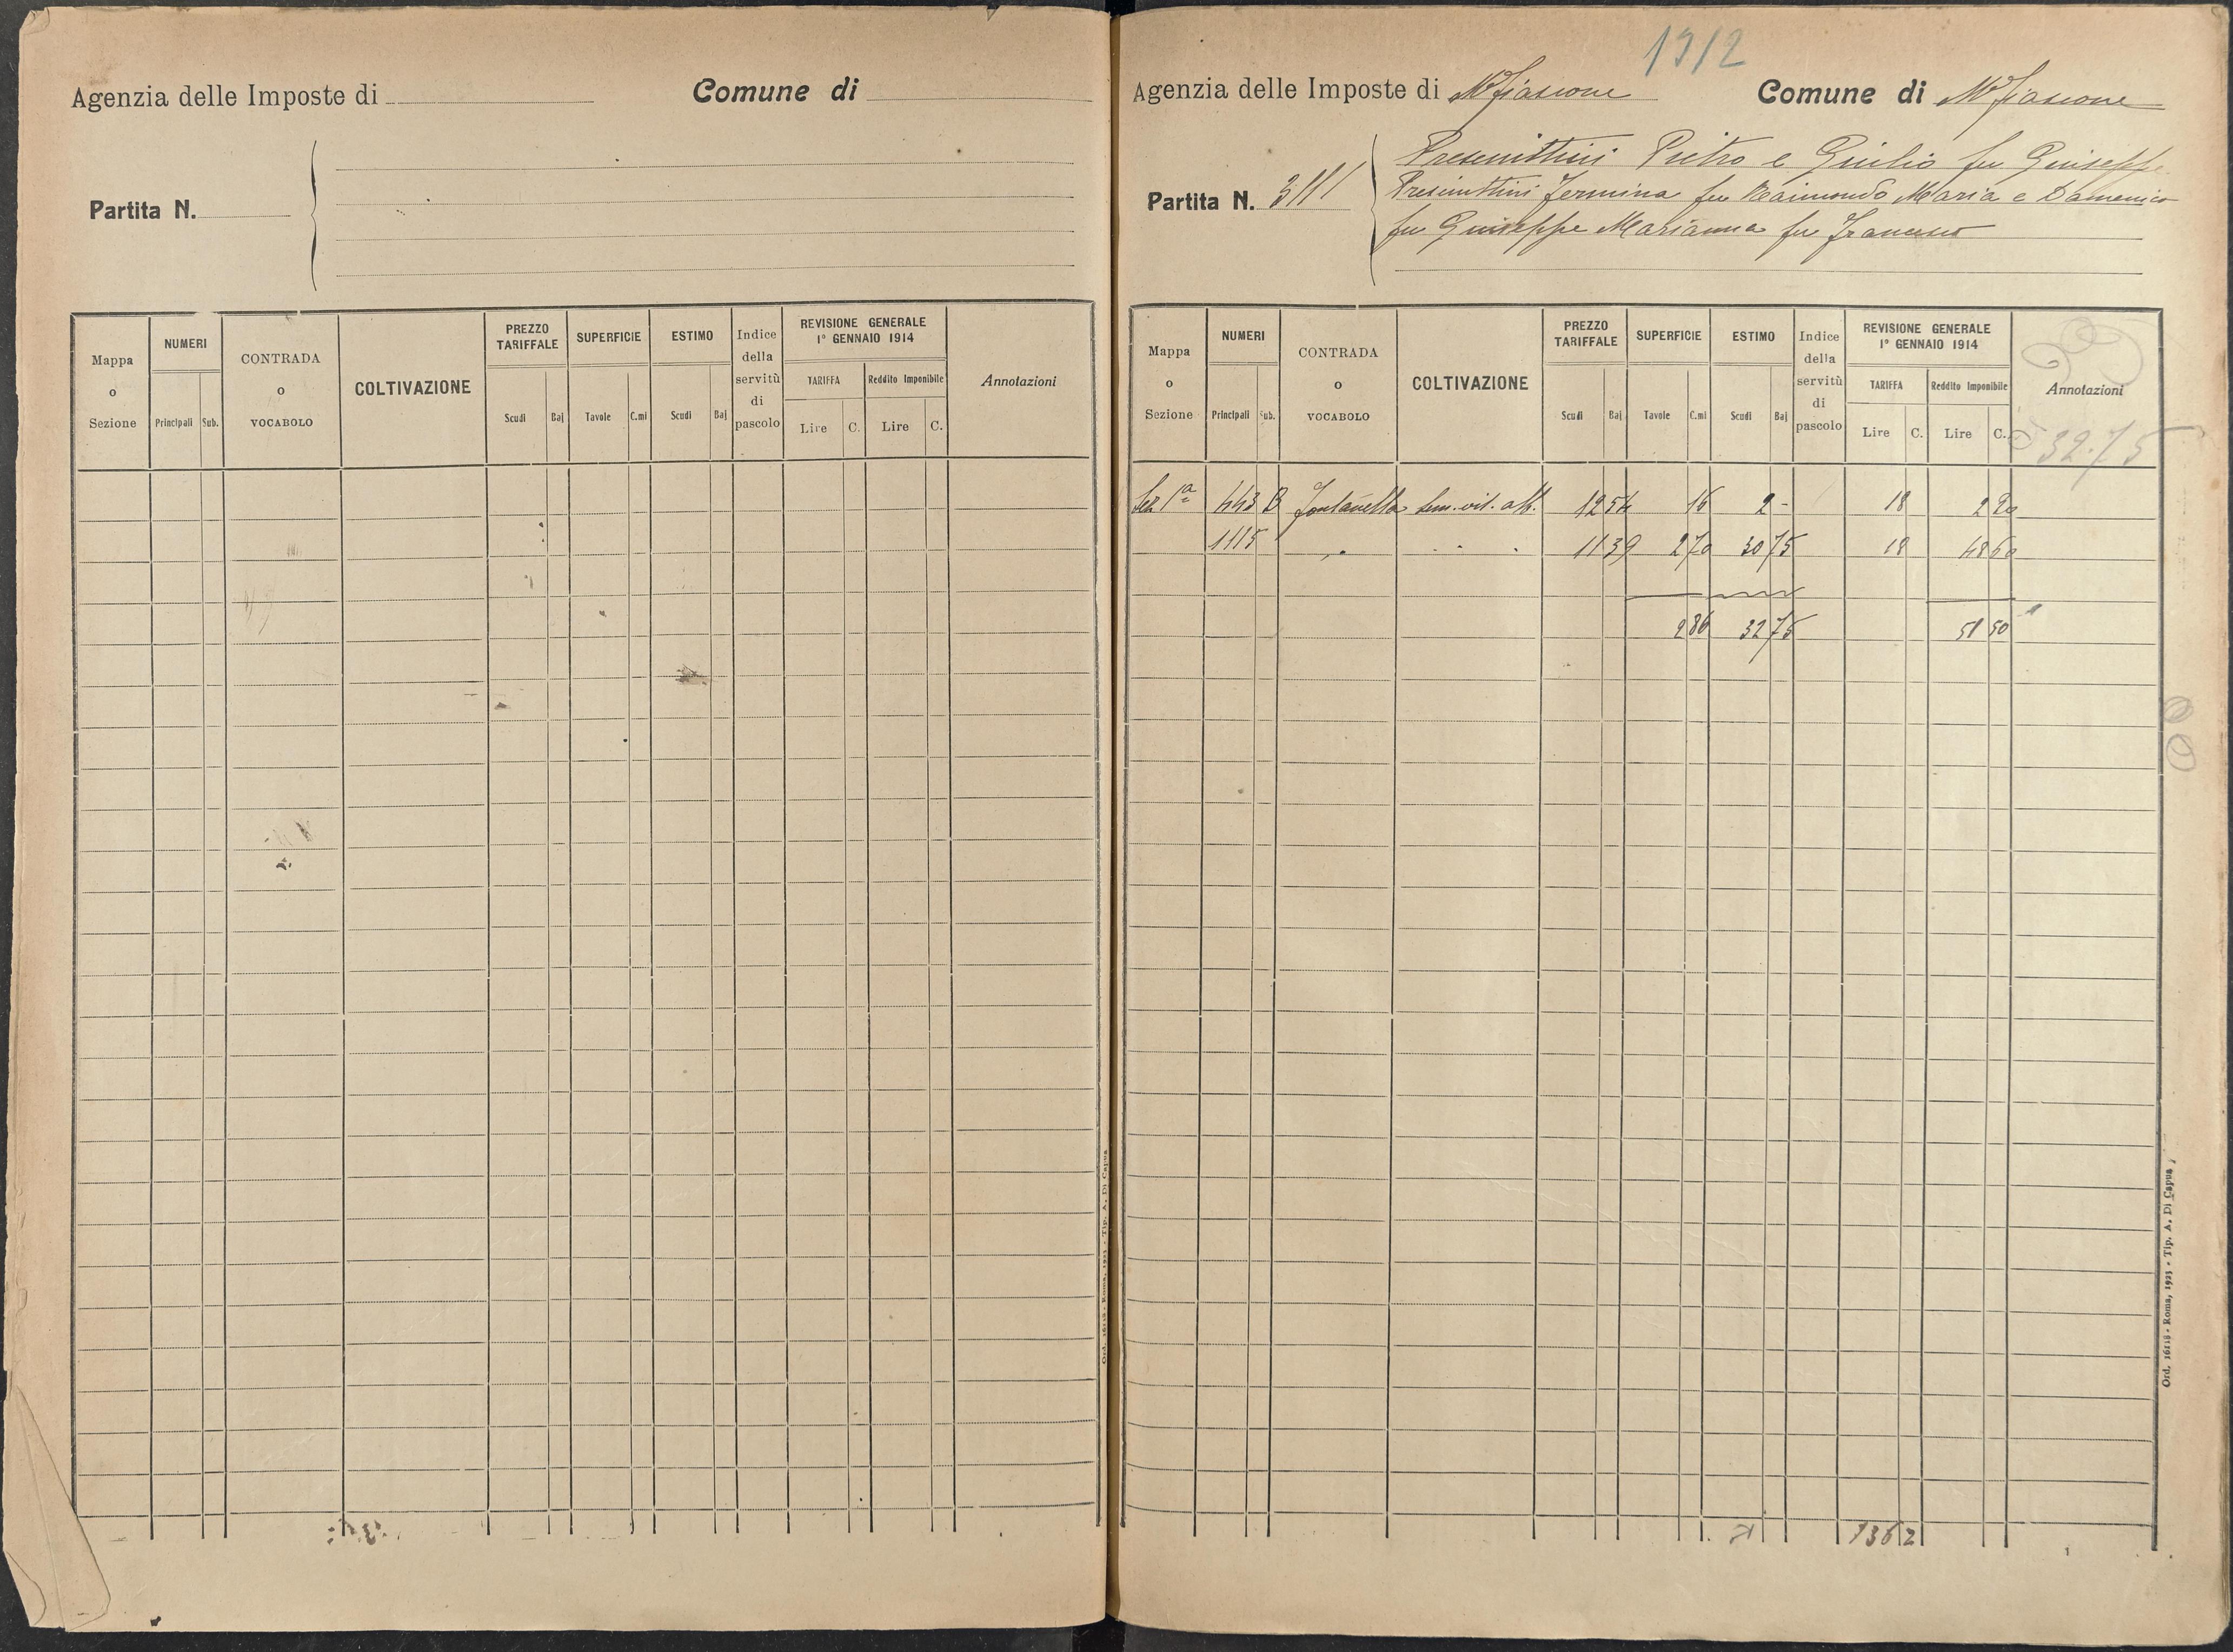 Agenzia delle Imposte di
Comune di
Partita N.
Mappa o Sezione
NUMERI
Principali
Sub.
CONTRADA o VOCABOLO
COLTIVAZIONE
PREZZO TARIFFALE
Scudi
Baj
SUPERFICIE
Tavole
C.mi
ESTIMO
Scudi
Baj
Indice della servitù di pascolo
REVISIONE GENERALE
1° GENNAIO 1914
TARIFFA
Reddito Imponibile
Lire
C.
Lire
C.
Annotazioni
Ord. 16118 - Roma, 1923 - Tip. A. Di Capua
1912
Agenzia delle Imposte di Mfiascone
Comune di Mfiascone
Partita N. 3111
Pietro e Giulio fu Giuseppe
Fermina fu Raimondo Maria e Domenico
fu Giuseppe Marianna fu Francesco
Mappa o Sezione
NUMERI
Principali
Sub.
CONTRADA o VOCABOLO
COLTIVAZIONE
PREZZO TARIFFALE
Scudi
Baj
SUPERFICIE
Tavole
C.mi
ESTIMO
Scudi
Baj
Indice della servitù di pascolo
REVISIONE GENERALE
1° GENNAIO 1914
TARIFFA
Reddito Imponibile
Lire
C.
Lire
C.
Annotazioni
32.75
Sez 1ª 443 B Fontanella sem. vit. alb. 12 54 16 2 - 18 2 90
1115 " " " " 11 39 2 70 30 75 18 48 60
2 86 32 75 51 50
1362
Ord. 16118 - Roma, 1923 - Tip. A. Di Capua